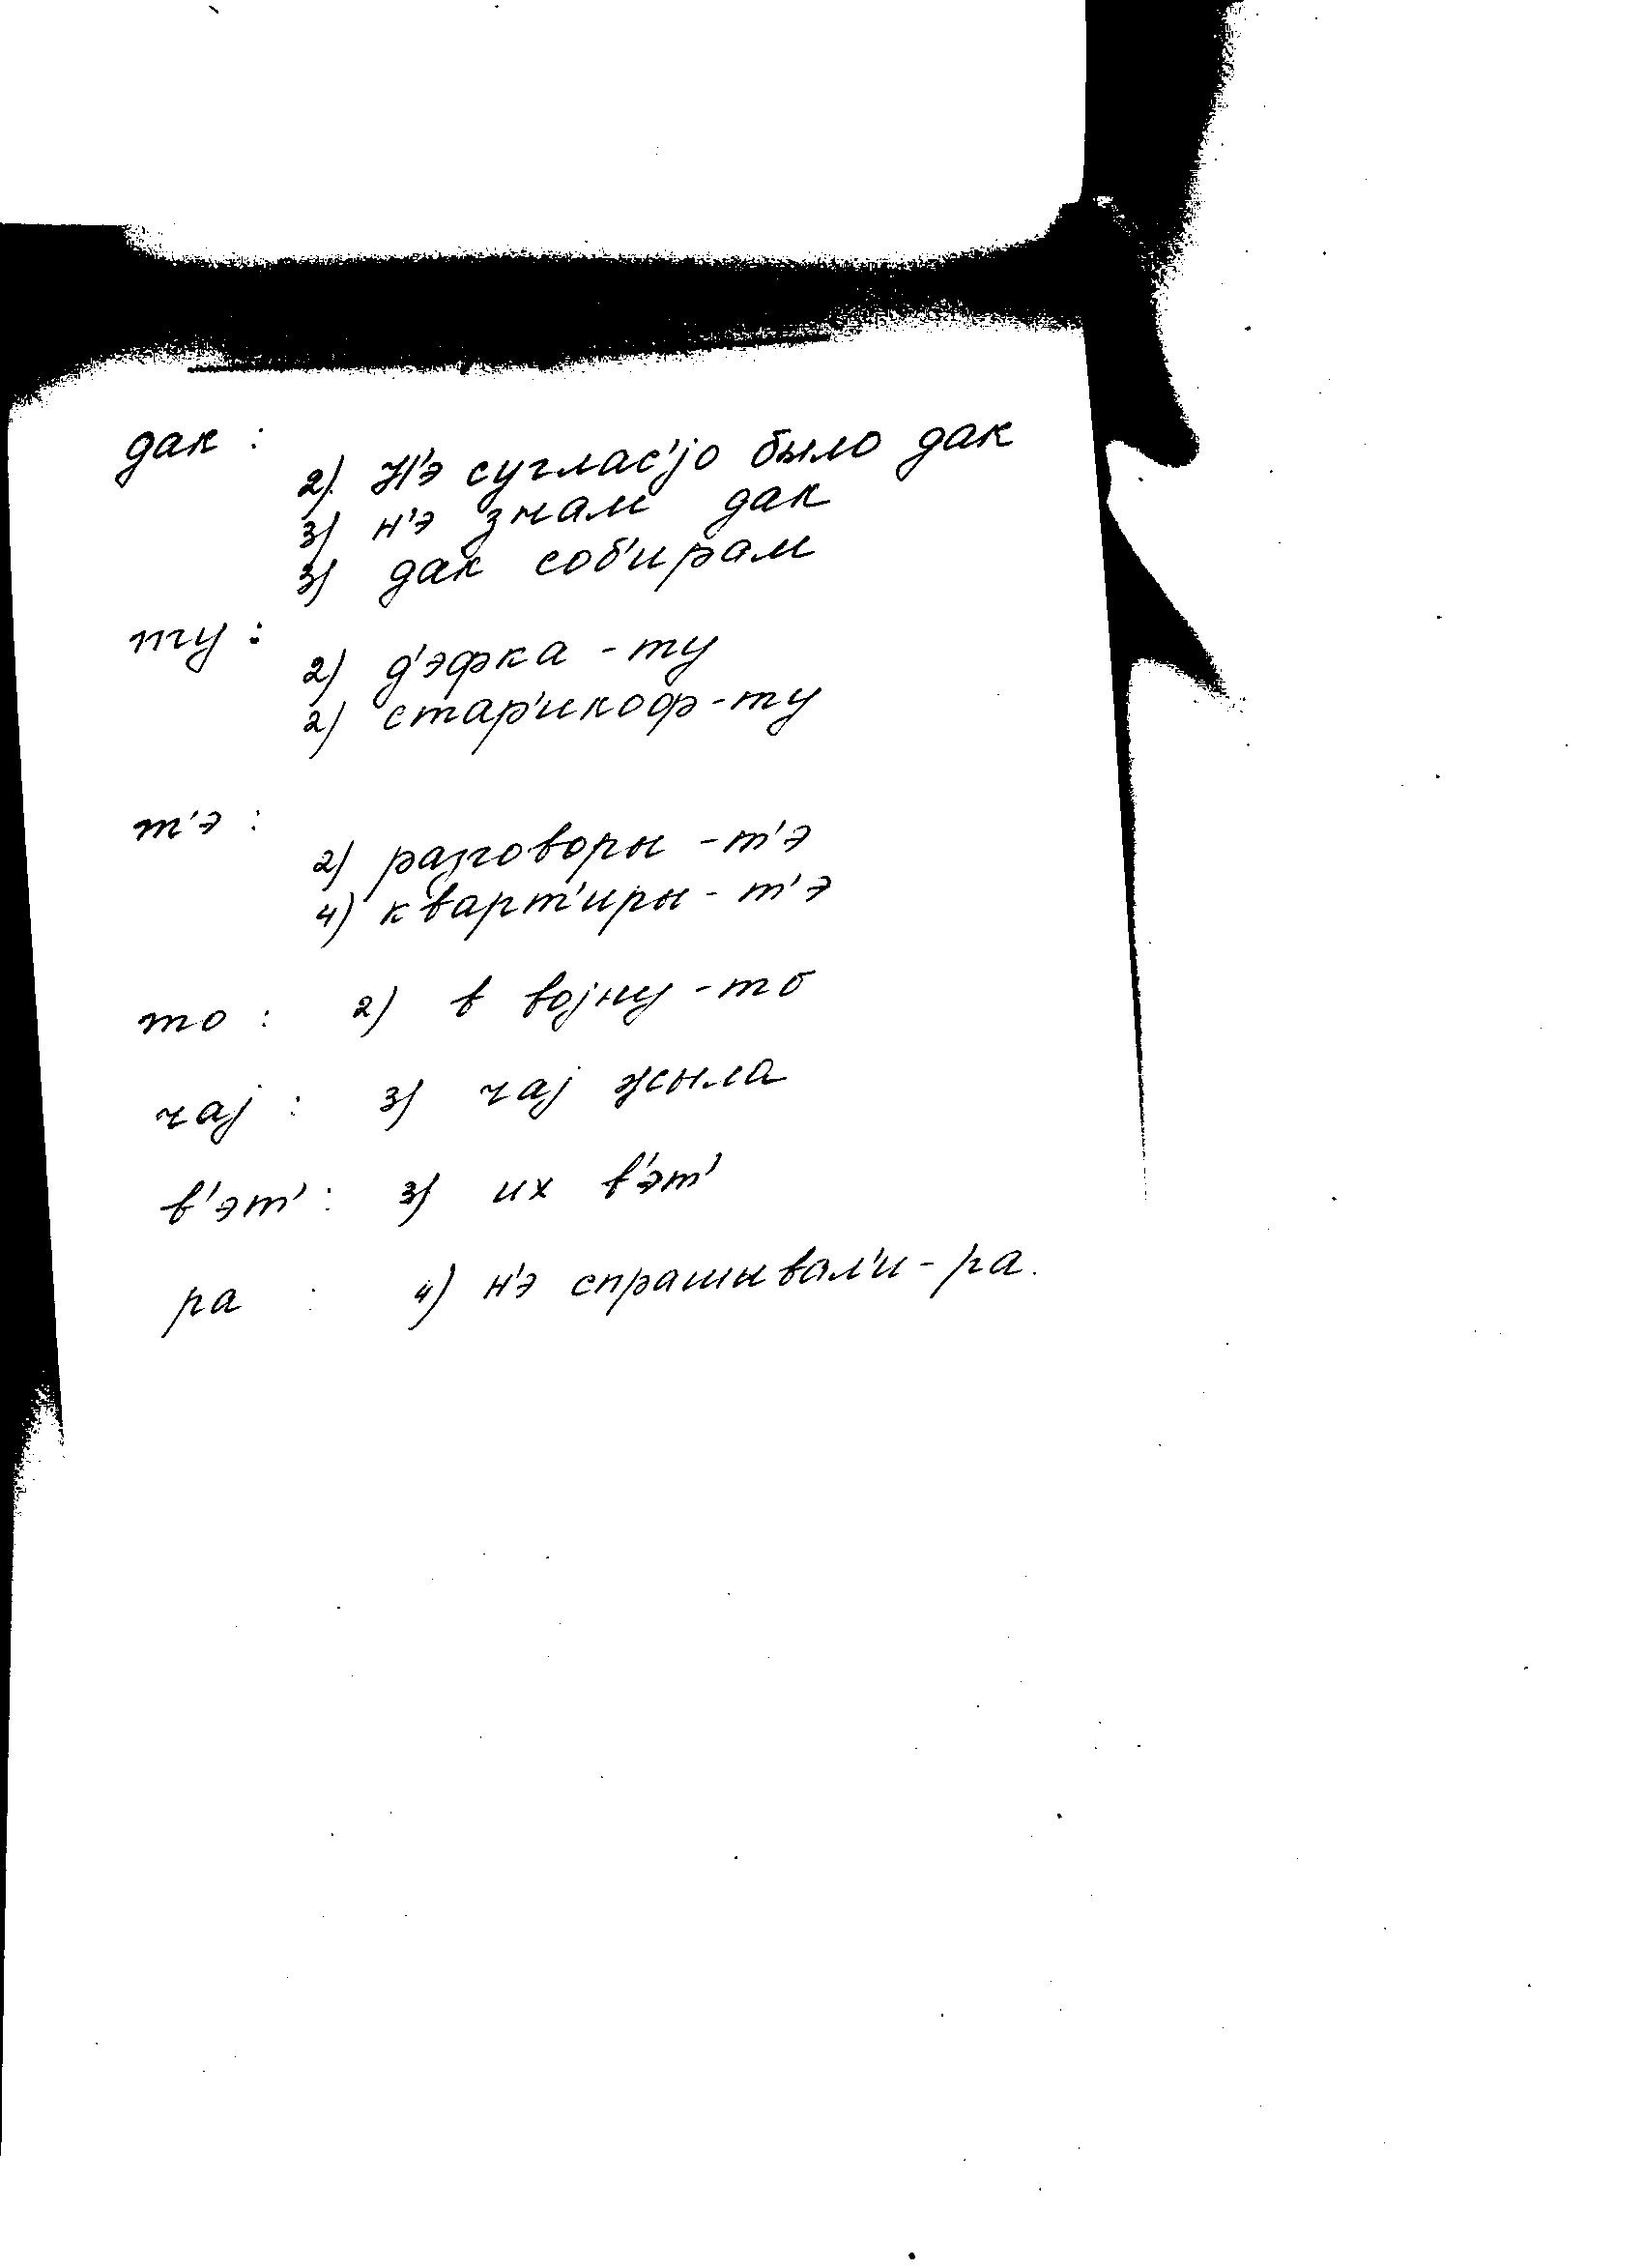 дак :
2) Н'э суглас'jо было дак
3) н'э знам дак
3) дак соб'ирам
ту :
2) д'эфка - ту
2) стар'икоф-ту
т'э :
2) разговоры - т'э
4) кварт'иры - т'э
то : 2) в воjну - то
чаj : 3) чаj жыла
в'эт' : 3) их в'эт'
ра : 4) н'э спрашывал'и - ра.